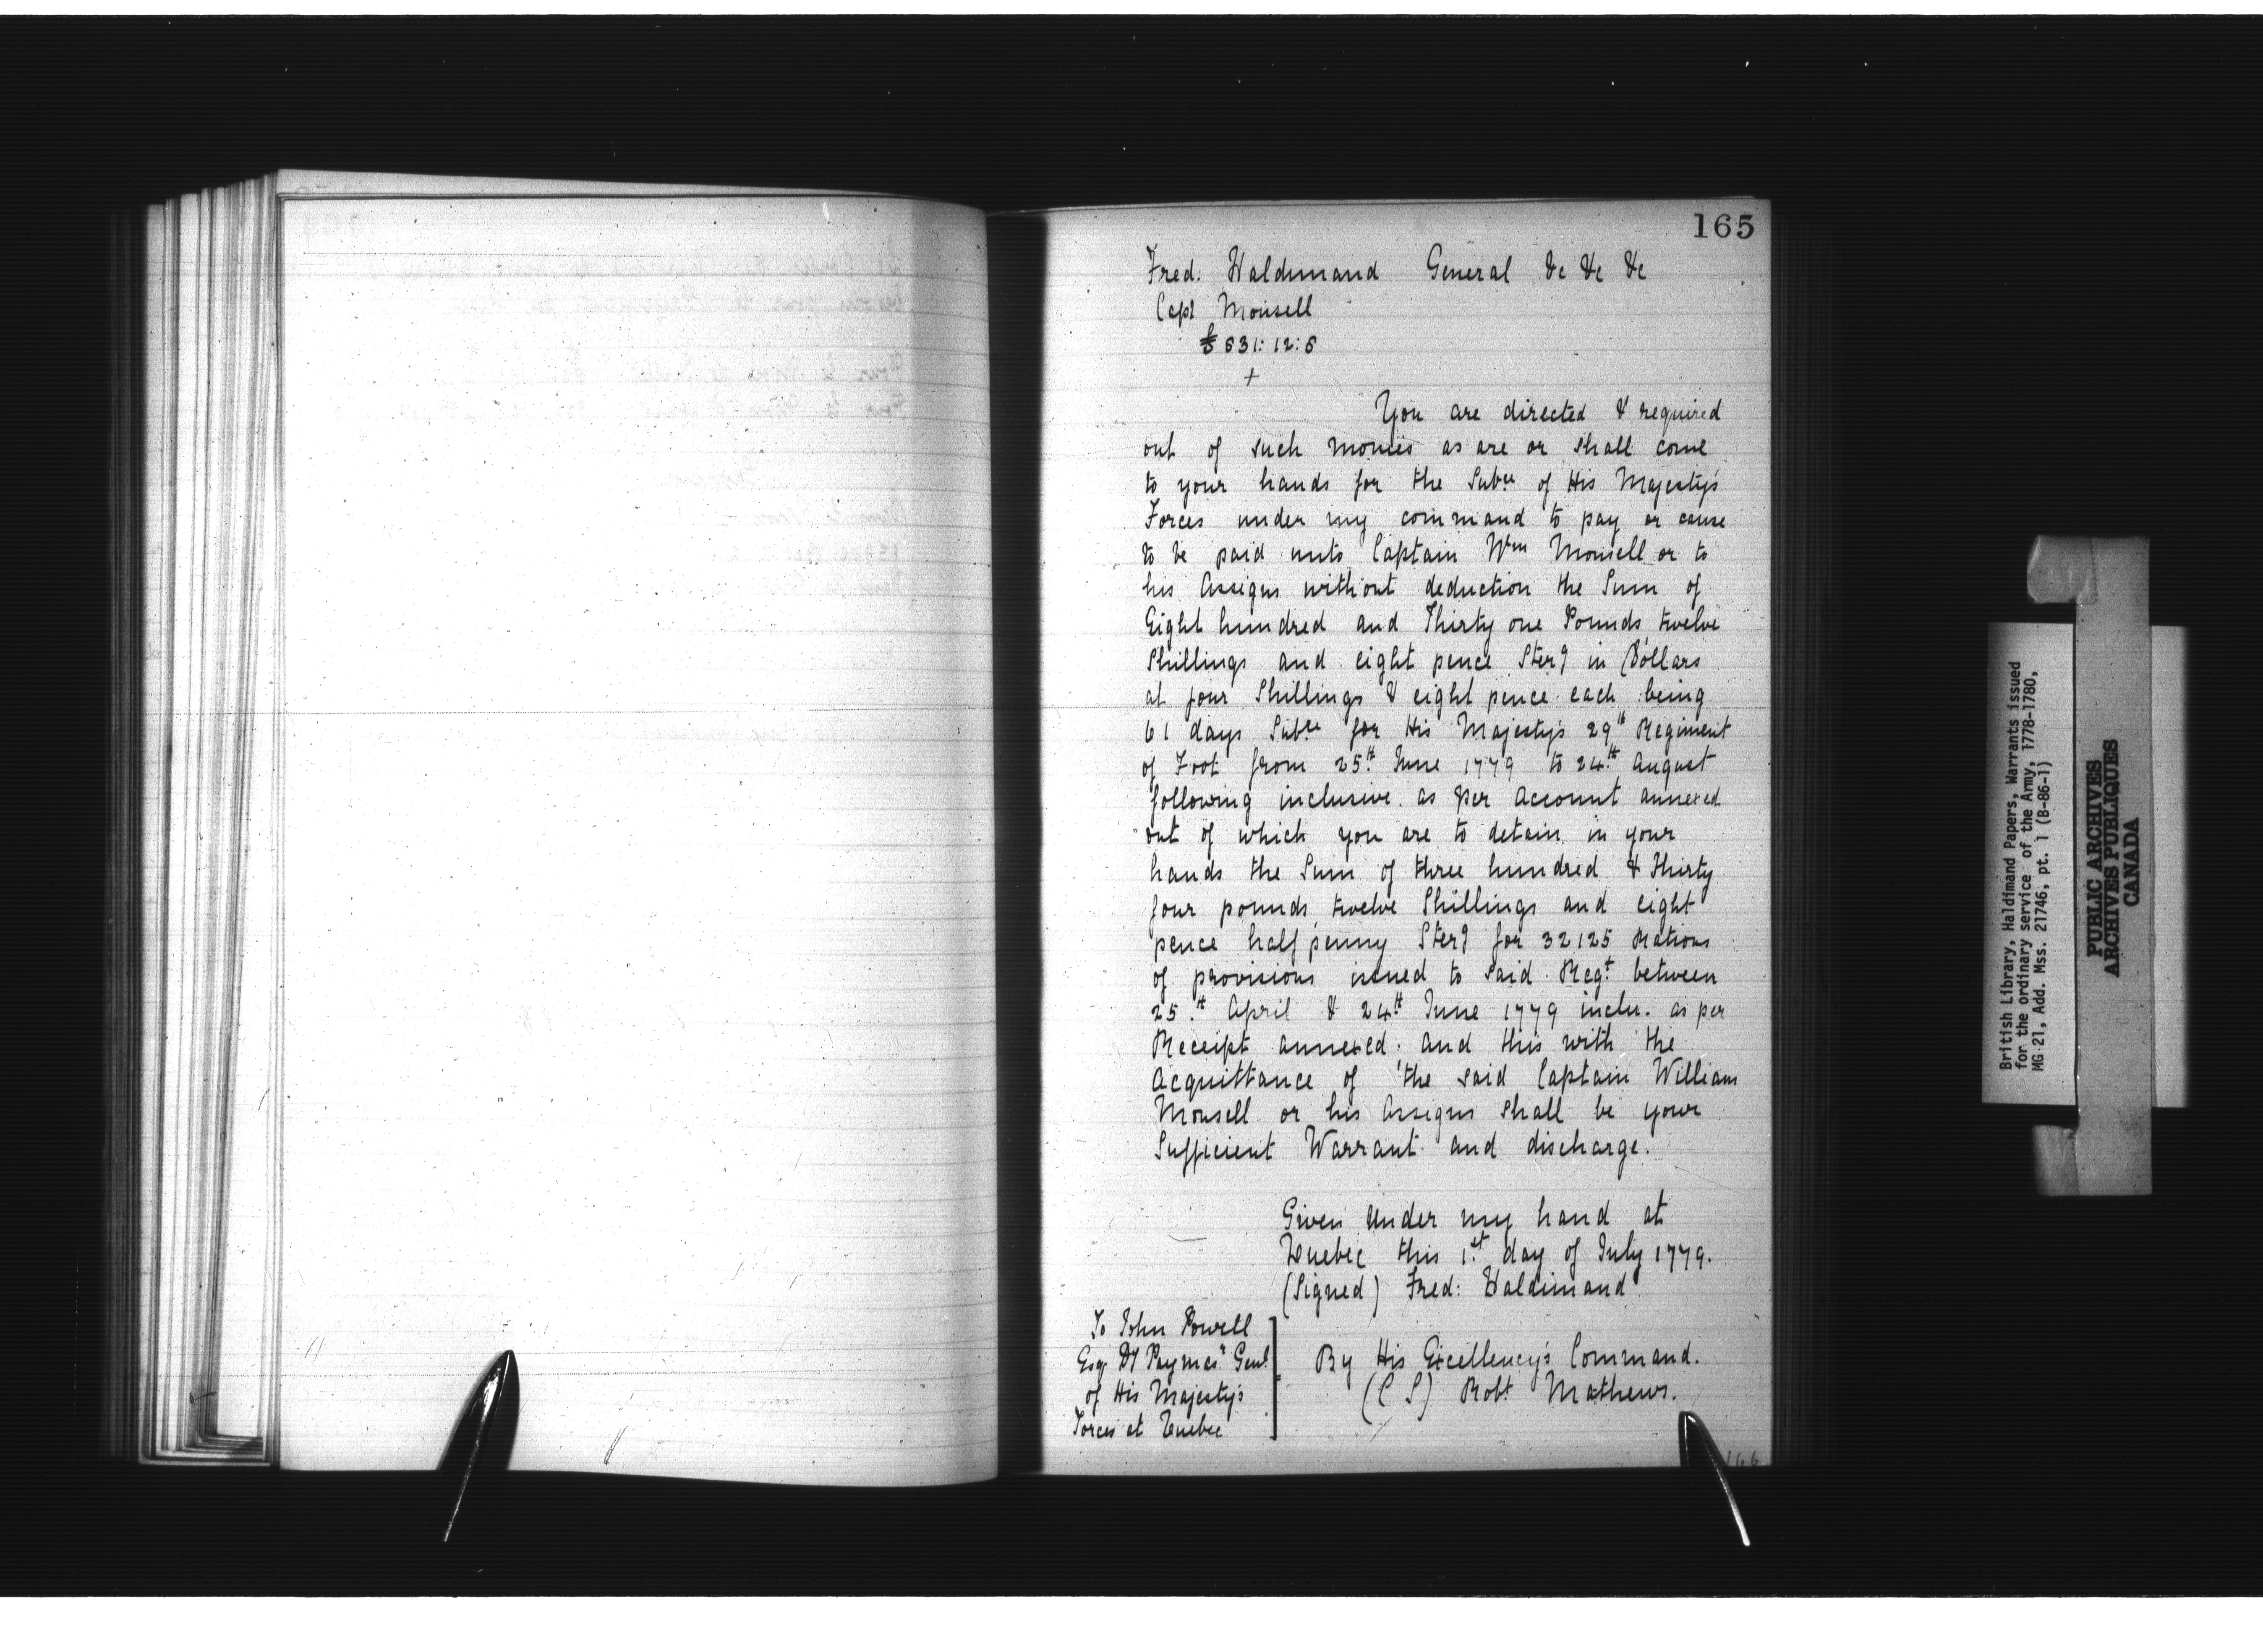 165
Fred: Haldimand General &c &c &c
Capt Monsell
£831:12:8
+
You are directed & required
out of such monies as are or shall come
to your hands for the Subce of His Majesty's
Forces under my command to pay or cause
to be paid unto Captain Wm Monsell or to
his Assigns without deduction the Sum of
Eight hundred and Thirty one Pounds twelve
Shillings and eight pence Sterg in Dollars
at four Shillings & eight pence each being
61 days Subce for His Majesty's 29th Regiment
of Foot from 25th June 1779 to 24th August
following inclusive as per Account annexed
out of which you are to detain in your
hands the Sum of three hundred & Thirty
four pounds twelve Shillings and eight
pence half penny Sterg for 32125 Rations
of provisions issued to said Regt between
25th April & 24th June 1779 inclu. as per
Receipt annexed and this with the
Acquittance of the said Captain William
Monsell or his Assigns shall be your
Sufficient Warrant and discharge.
Given under my hand at
Quebec this 1st day of July 1779.
(Signed) Fred: Haldimand
To John Powell
Esq Dy Paymasr Genl
of His Majesty's
Forces at Quebec
By His Excellency's Command.
(C S) Robt Mathews.
166
British Library, Haldimand Papers, Warrants issued
for the ordinary service of the Army, 1778-1780,
MG 21, Add. Mss. 21746, pt. 1 (B-86-1)
PUBLIC ARCHIVES
ARCHIVES PUBLIQUES
CANADA